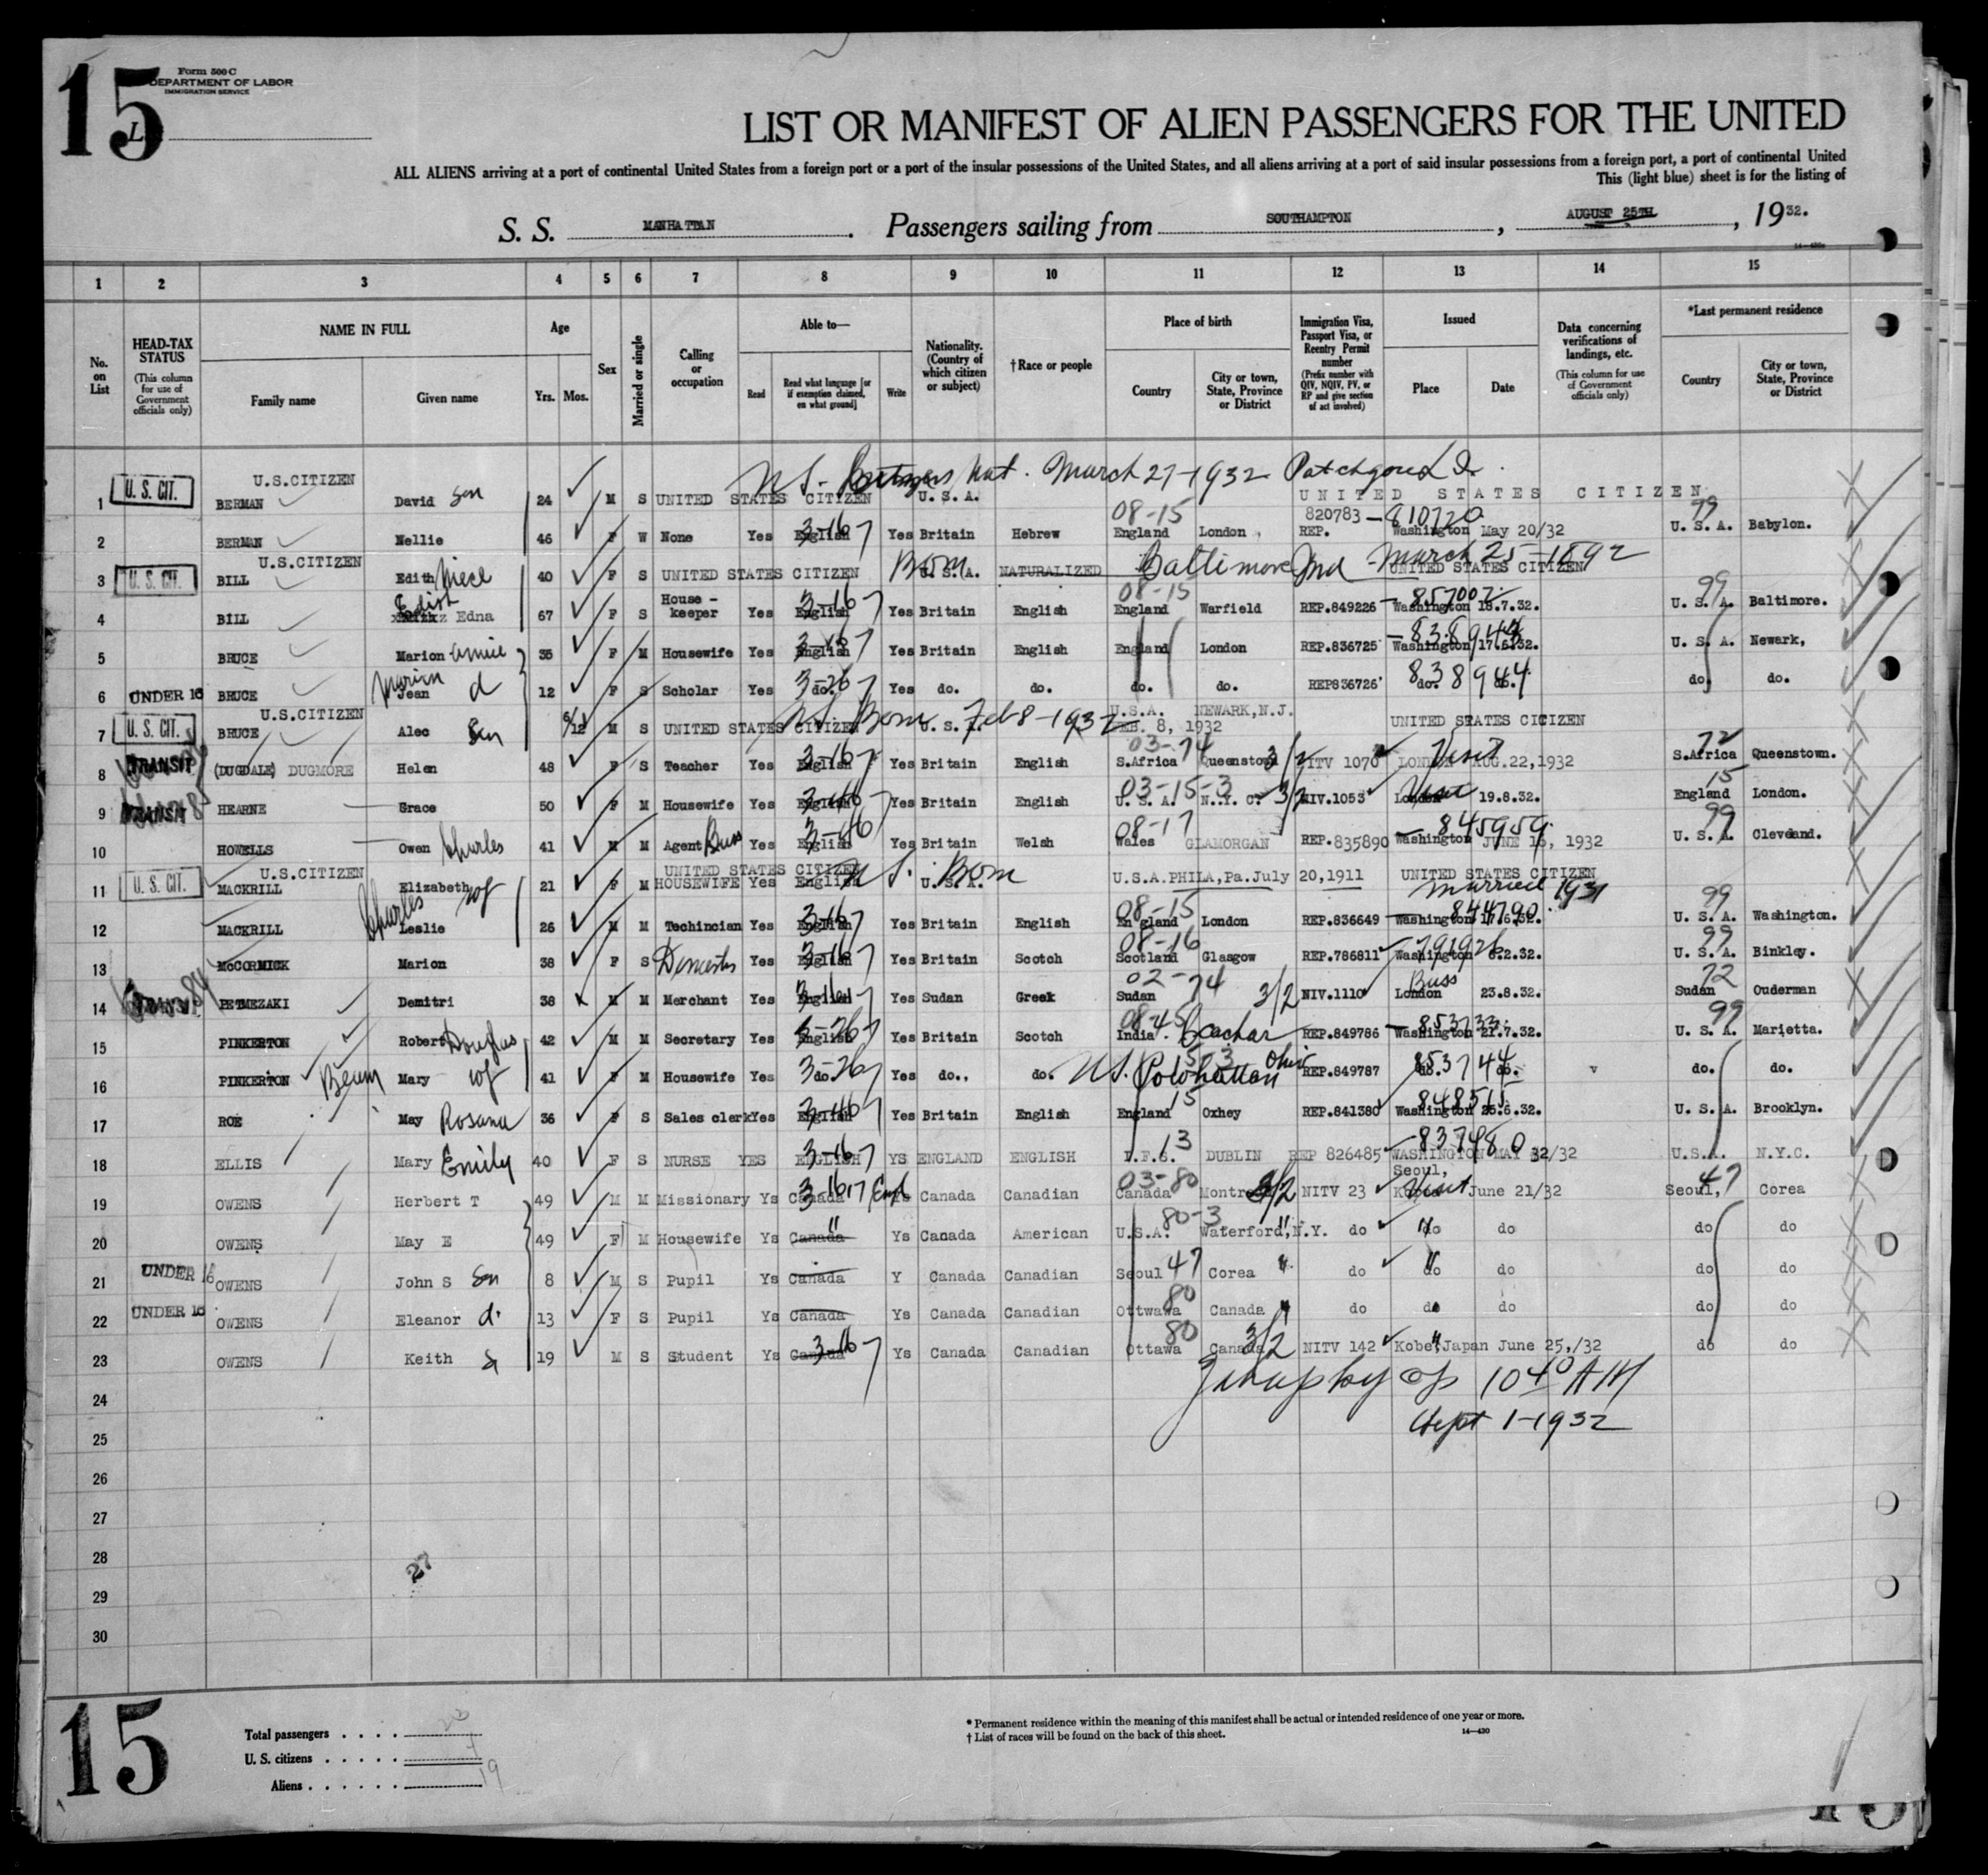 15
Form 500 C
DEPARTMENT OF LABOR
IMMIGRATION SERVICE
LIST OR MANIFEST OF ALIEN PASSENGERS FOR THE UNITED
ALL ALIENS arriving at a port of continental United States from a foreign port or a port of the insular possessions of the United States, and all aliens arriving at a port of said insular possessions from a foreign port, a port of continental United
This (light blue) sheet is for the listing of
S. S. MANHATTAN. Passengers sailing from SOUTHAMPTON, AUGUST 25TH, 1932.
1 2 3 4 5 6 7 8 9 10 11 12 13 14 15
No. on List
HEAD-TAX STATUS (This column for use of Government officials only)
NAME IN FULL Family name Given name
Age Yrs. Mos.
Sex
Married or single
Calling or occupation
Able to— Read Read what language [or if exemption claimed, on what ground] Write
Nationality. (Country of which citizen or subject)
†Race or people
Place of birth Country City or town, State, Province or District
Immigration Visa, Passport Visa, or Reentry Permit number (Prefix number with QIV, NQIV, PV, or RP and give section of act involved)
Issued Place Date
Data concerning verifications of landings, etc. (This column for use of Government officials only)
*Last permanent residence Country City or town, State, Province or District
U.S.CITIZEN March 27-1932
1 U. S. CIT. BERMAN David Son 24 M S UNITED STATES CITIZEN U. S. A. UNITED STATES CITIZEN
08-15 820783 - 810720 99
2 BERMAN Nellie 46 F W None Yes English 3-16 Yes Britain Hebrew England London REP. Washington May 20/32 U. S. A. Babylon.
U.S.CITIZEN
3 U. S. CIT. BILL Edith Niece 40 F S UNITED STATES CITIZEN Born U. S. A. NATURALIZED Baltimore Md - March 25-1892 UNITED STATES CITIZEN
4 BILL Edith Edna 67 F S House-keeper Yes English 3-16 Yes Britain English 08-15 England Warfield REP.849226 - 857002 Washington 18.7.32. 99 U. S. A. Baltimore.
5 BRUCE Marion Annie 35 F M Housewife Yes English Yes Britain English England London REP.836725 - 838944 Washington 17.6.32. U. S. A. Newark,
6 UNDER 16 BRUCE Jean d 12 F S Scholar Yes do. 3-26 Yes do. do. do. do. REP836726 838944 do. do. do. do.
U.S.CITIZEN U.S.A. NEWARK,N.J.
7 U. S. CIT. BRUCE Alec Son 6/12 M S UNITED STATES CITIZEN US Born U. S. A. Feb 8-1932 FEB. 8, 1932 UNITED STATES CICIZEN
8 TRANSIT (DUGDALE) DUGMORE Helen 48 F S Teacher Yes English 3-16 Yes Britain English 03-74 S.Africa Queenstown 3/2 NITV 1070 LONDON Visit AUG.22,1932 72 S.Africa Queenstown.
9 TRANSIT HEARNE Grace 50 F M Housewife Yes English Yes Britain English 03-15-3 U. S. A. N. Y. C. 3/2 NIV.1053 London Visit 19.8.32. 15 England London.
10 HOWELLS Owen Charles 41 M M Agent Buss Yes English Yes Britain Welsh 08-17 Wales GLAMORGAN REP.835890 - 845959 Washington JUNE 16, 1932 99 U. S. A. Cleveland.
U.S.CITIZEN UNITED STATES CITIZEN
11 U. S. CIT. MACKRILL Elizabeth wf 21 F M HOUSEWIFE Yes English US. Born U. S. A. U.S.A.PHILA,Pa.July 20,1911 UNITED STATES CITIZEN married 1931
12 MACKRILL Leslie Charles 26 M M Techincian Yes English 3-16 Yes Britain English 08-15 England London REP.836649 - 844790 Washington 17.6.32. 99 U. S. A. Washington.
13 McCORMICK Marion 38 F S Domestic Yes English 3-16 Yes Britain Scotch 08-16 Scotland Glasgow REP.786811 Washington 6.2.32. 99 U. S. A. Binkley.
14 PETMEZAKI Demitri 38 M M Merchant Yes English Yes Sudan Greek 02-74 Sudan 3/2 NIV.1110 Buss London 23.8.32. 72 Sudan Ouderman
15 PINKERTON Robert Douglas 42 M M Secretary Yes English 3-26 Yes Britain Scotch 08-45 India. Cachar REP.849786 - 853733 Washington 21.7.32. 99 U. S. A. Marietta.
16 PINKERTON Mary wf 41 F M Housewife Yes do. 3-26 Yes do., do. US. Powhattan Ohio REP.849787 853744 do. do. do. do.
17 ROE May Rosana 36 F S Sales clerk Yes English Yes Britain English 15 England Oxhey REP.841380 848515 Washington 25.6.32. U. S. A. Brooklyn.
18 ELLIS Mary Emily 40 F S NURSE YES ENGLISH 3-16 YS ENGLAND ENGLISH 13 I.F.S. DUBLIN REP 826485 - 837480 WASHINGTON MAY 32/32 U.S.A. N.Y.C.
Seoul,
19 OWENS Herbert T 49 M M Missionary Ys Canada Eng Ys Canada Canadian 03-80 Canada Montreal 3/2 NITV 23 Korea Visit June 21/32 Seoul, 47 Corea
20 OWENS May E 49 F M Housewife Ys Canada " Ys Canada American 80-3 U.S.A. Waterford, N.Y. do do do do do
21 UNDER 16 OWENS John S Son 8 M S Pupil Ys Canada Y Canada Canadian Seoul 47 Corea do do do do do
22 UNDER 16 OWENS Eleanor d. 13 F S Pupil Ys Canada Ys Canada Canadian 80 Ottwawa Canada do do do do do
23 OWENS Keith S 19 M S Student Ys Canada 3-16 Ys Canada Canadian 80 Ottawa Canada 3/2 NITV 142 Kobe, Japan June 25,/32 do do
24 10 40 AM
25 Sept 1-1932
26
27
28
29 27
30
15
Total passengers . . . . 23
U. S. citizens . . . . . 4
Aliens . . . . . . 19
* Permanent residence within the meaning of this manifest shall be actual or intended residence of one year or more.
† List of races will be found on the back of this sheet. 14—430